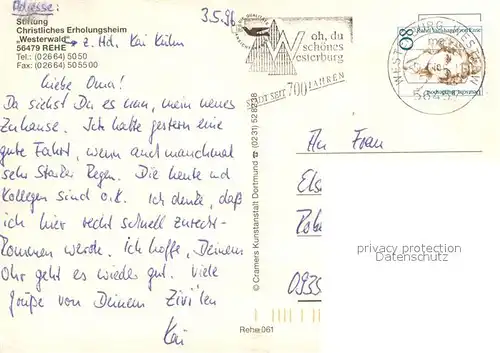 Adresse:
Stiftung
Christliches Erholungsheim
"Westerwald"
56479 REHE
z. Hd. Kai Kühn
Tel.: (0 26 64) 50 50
Fax: (0 26 64) 50 55 00
3.5.96
Liebe Oma!
Da siehst Du es nun, mein neues
Zuhause. Ich hatte gestern eine
gute Fahrt, wenn auch manchmal
sehr starker Regen. Die Leute und
Kollegen sind o.k. Ich denke, daß
ich hier recht schnell zurecht-
kommen werde. Ich hoffe, Deinem
Ohr geht es wieder gut. Viele
Grüße von Deinem Zivi'len
Kai
© Cramers Kunstanstalt Dortmund ☎ (0231) 52 82 38
Rehe 061
oh, du
schönes
Westerburg
STADT SEIT 700 JAHREN
80
An Frau
Els
0935
privacy protection
Datenschutz